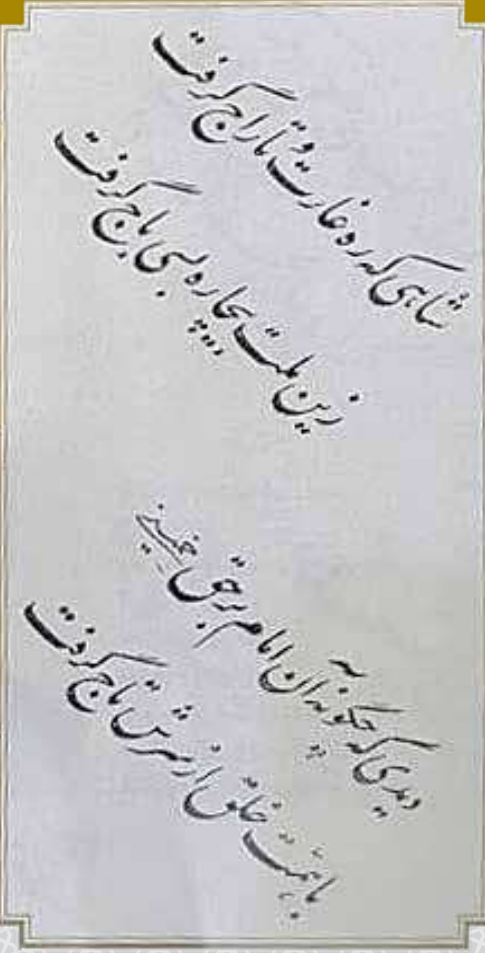 شاهی که ره غارت و تاراج گرفت
زین ملت بیچاره بسی باج گرفت
دیدی که چگونه آن امام بر حق خمینی
با همت خلق از سرش تاج گرفت